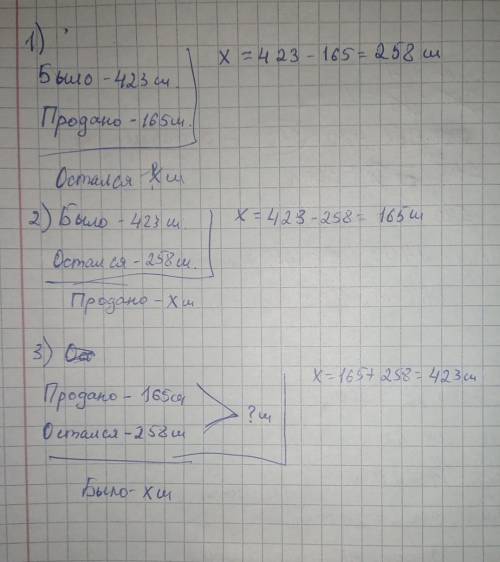 1)
Было - 423 ш.
Продано - 165 ш.
Остался - х ш
х = 423 - 165 = 258 ш
2) Было - 423 ш.
Остался - 258 ш.
Продано - х ш
х = 423 - 258 = 165 ш
3)
Продано - 165 ш
Остался - 258 ш
? ш
Было - х ш
х = 165 + 258 = 423 ш